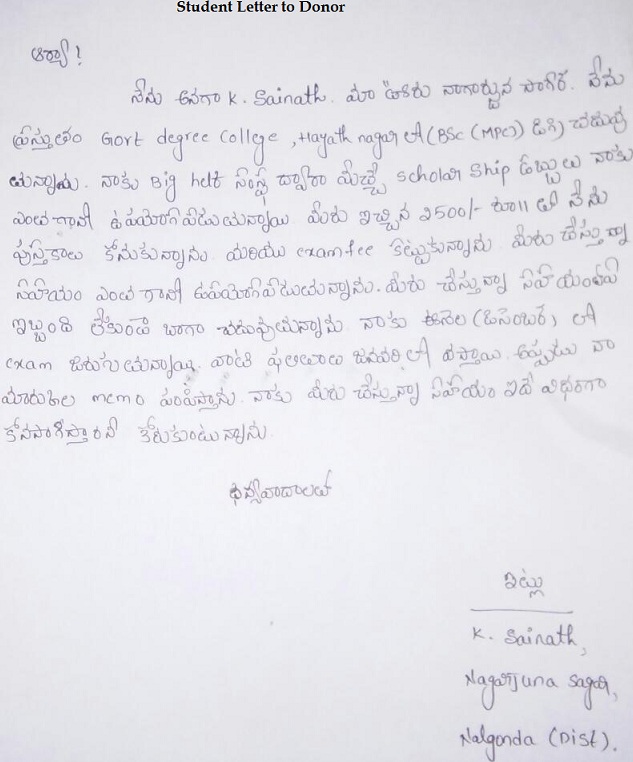 Student Letter to Donor
ఆర్యా!
నేను అనగా K. Sainath. మా ఊరు నాగార్జున సాగర్. నేను
ప్రస్తుతం Govt degree College, Hayath nagar లో (BSc (MPCs) డిగ్రీ) చదువు
తున్నాను. నాకు Big help సంస్థ ద్వారా మీరిచ్చే scholar Ship డబ్బులు నాకు
ఎంత గానో ఉపయోగపడుతున్నాయి. మీరు ఇచ్చిన 2500/- రూ॥ లతో నేను
పుస్తకాలు కొనుకున్నాను. మరియు exam fee కట్టుకున్నాను. మీరు చేస్తున్న
సహాయం ఎంత గానో ఉపయోగపడుతున్నాను. మీరు చేస్తున్న సహాయంతో
ఇబ్బంది లేకుండా బాగా చదువుతున్నాను నాకు ఈనెల (డిసెంబర్) లో
exam జరుగుతున్నాయి. వాటి ఫలితాలు జనవరి లో వస్తాయి. అప్పుడు నా
మార్కుల memo పంపిస్తాను. నాకు మీరు చేస్తున్న సహాయం ఇదే విధంగా
కొనసాగిస్తారని కోరుకుంటున్నాను.
ధన్యవాదాలతో
ఇట్లు
K. Sainath,
Nagarjuna sagar,
Nalgonda (Dist).